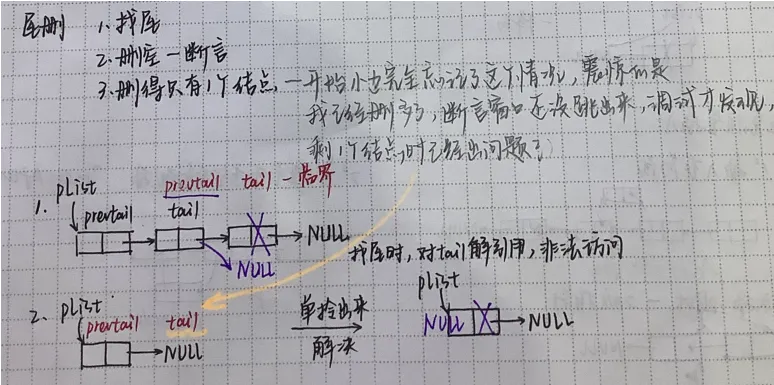 尾删 1. 找尾
2. 删空 — 断言
3. 删得只有1个结点, 一开始小边完全忘记了这个情况, 震惊的是
我已经删多了, 断言窗口还没跳出来, 调试才发现,
剩1个结点时已经出问题了
prevtail tail - 临界
1. pList
prevtail tail
NULL
NULL
找尾时, 对tail解引用, 非法访问
2. pList
prevtail tail
NULL
单拎出来
解决
pList
NULL NULL